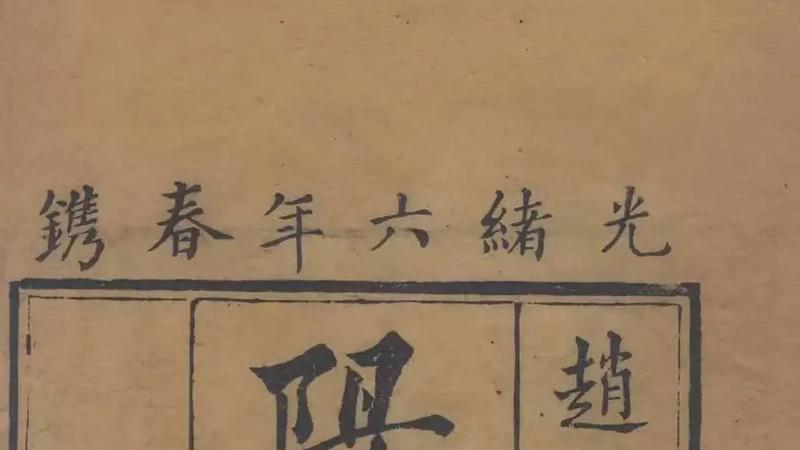 光緒六年春鎸
趙